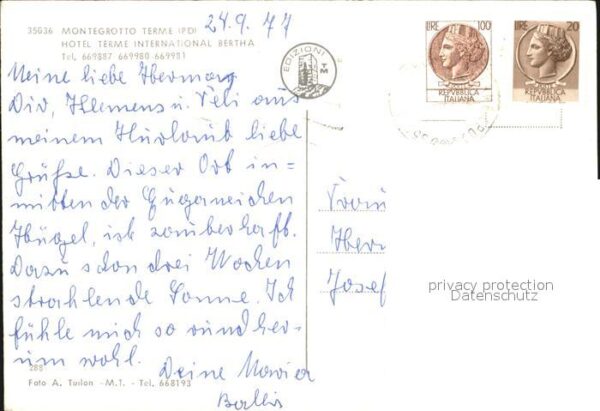 24.9.77
35036 MONTEGROTTO TERME (PD)
HOTEL TERME INTERNATIONAL BERTHA
Tel. 669887 669980 669981
Meine liebe
Dir, Klemens u. Veli aus
meinem Kurlaub liebe
Grüße. Dieser Ort in=
mitten der Euganeischen
Hügel, ist zauberhaft.
Dazu schon drei Wochen
strahlende Sonne. Ich
fühle mich so rundher=
um wohl.
Deine Maria
288
Foto A. Turlon - M.T. - Tel. 668193
EDIZIONI
TM
LIRE 100
REPVBBLICA
ITALIANA
LIRE 20
REPVBBLICA
ITALIANA
Josef
privacy protection
Datenschutz